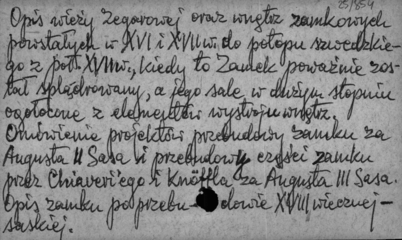 25/854
Opis wieży zegarowej oraz wnętrz zamkowych
powstałych w XVI i XVII w. do potopu szwedzkie-
go z poł. XVII w., kiedy to Zamek poważnie zos-
tał splądrowany, a jego sale w dużym stopniu
ogołocone z elementów wystroju wnętrz.
Omówienie projektów przebudowy zamku za
Augusta II Sasa i przebudowy części zamku
przez Chiaveri'ego i Knöffla za Augusta III Sasa.
Opis zamku po przebu-dowie XVIII wiecznej-
saskiej.